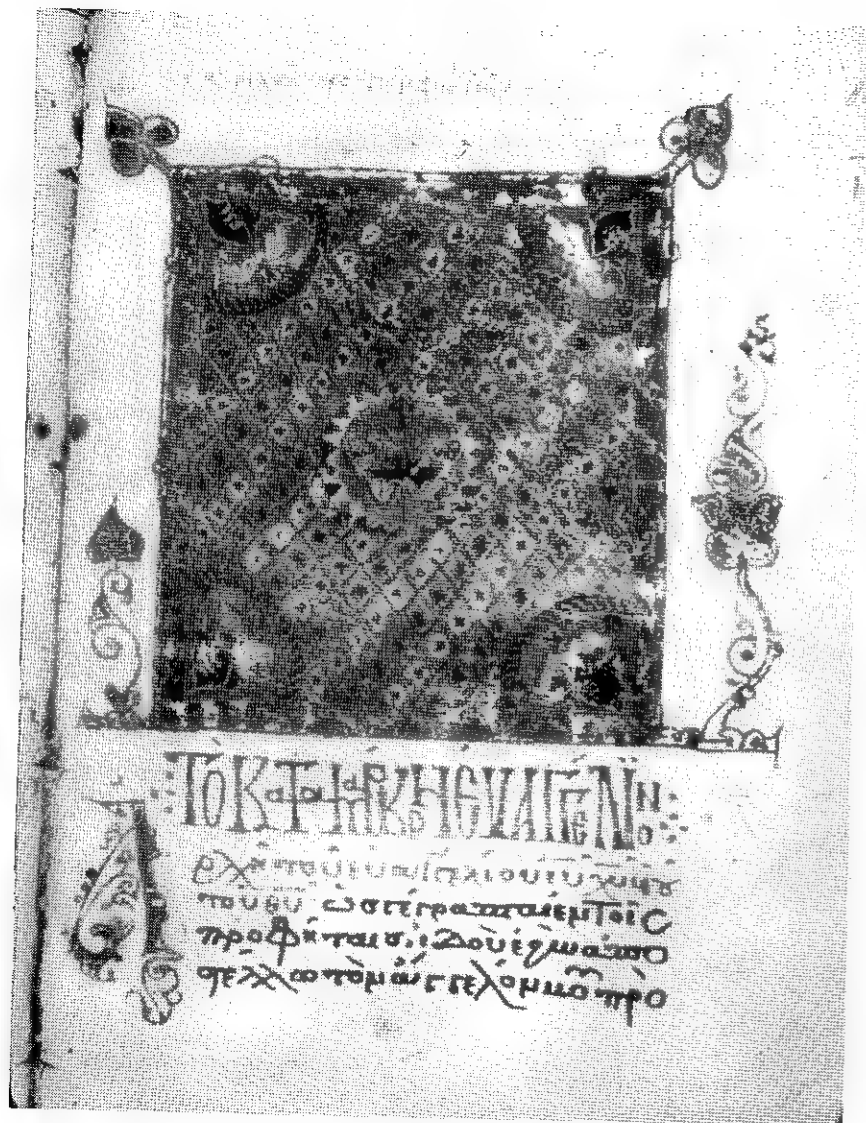 ΤὸΚαταΜάρκονΕὐαΓΓέΛιον
Ἀρχὴ τοῦ εὐαγγελίου ιυ χυ υιου
του θυ· ὡς γέγραπται ἐν τοῖς
προφήταις· ἰδοὺ ἐγὼ ἀπο
στέλλω τὸν ἄγγελόν μου πρὸ